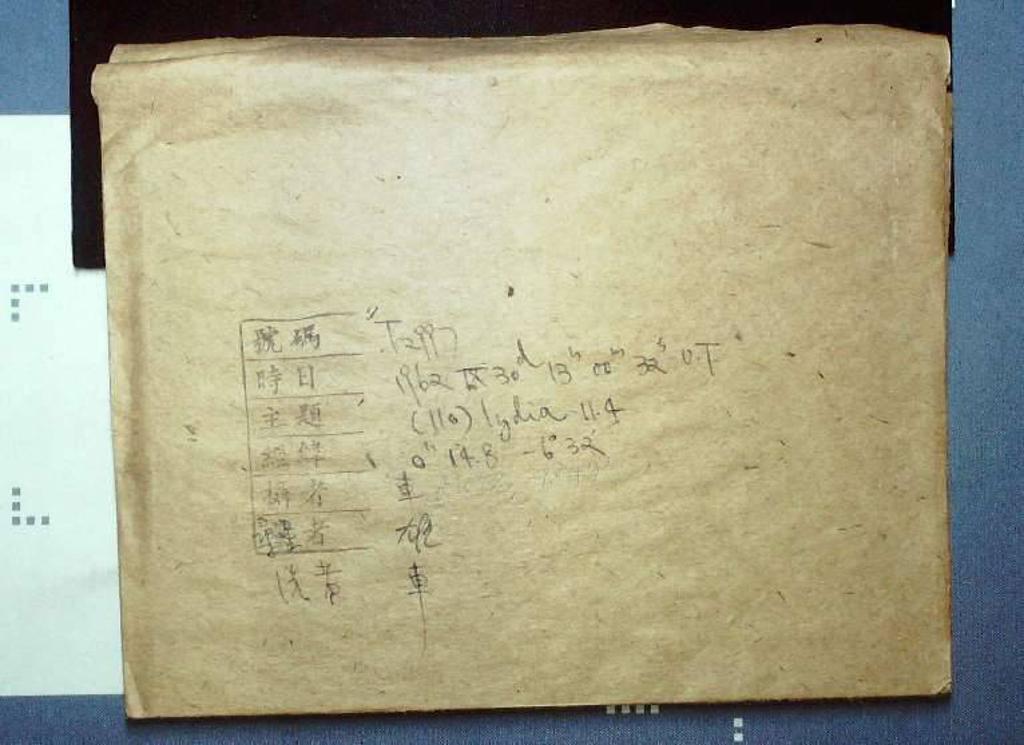 號碼 T2997
時日 1962 IX 30d 13h 00m 32s U.T
主題 (110) lydia 11.4
經緯 0h 14.8 -6° 32'
攝者 車
者
洗者 車